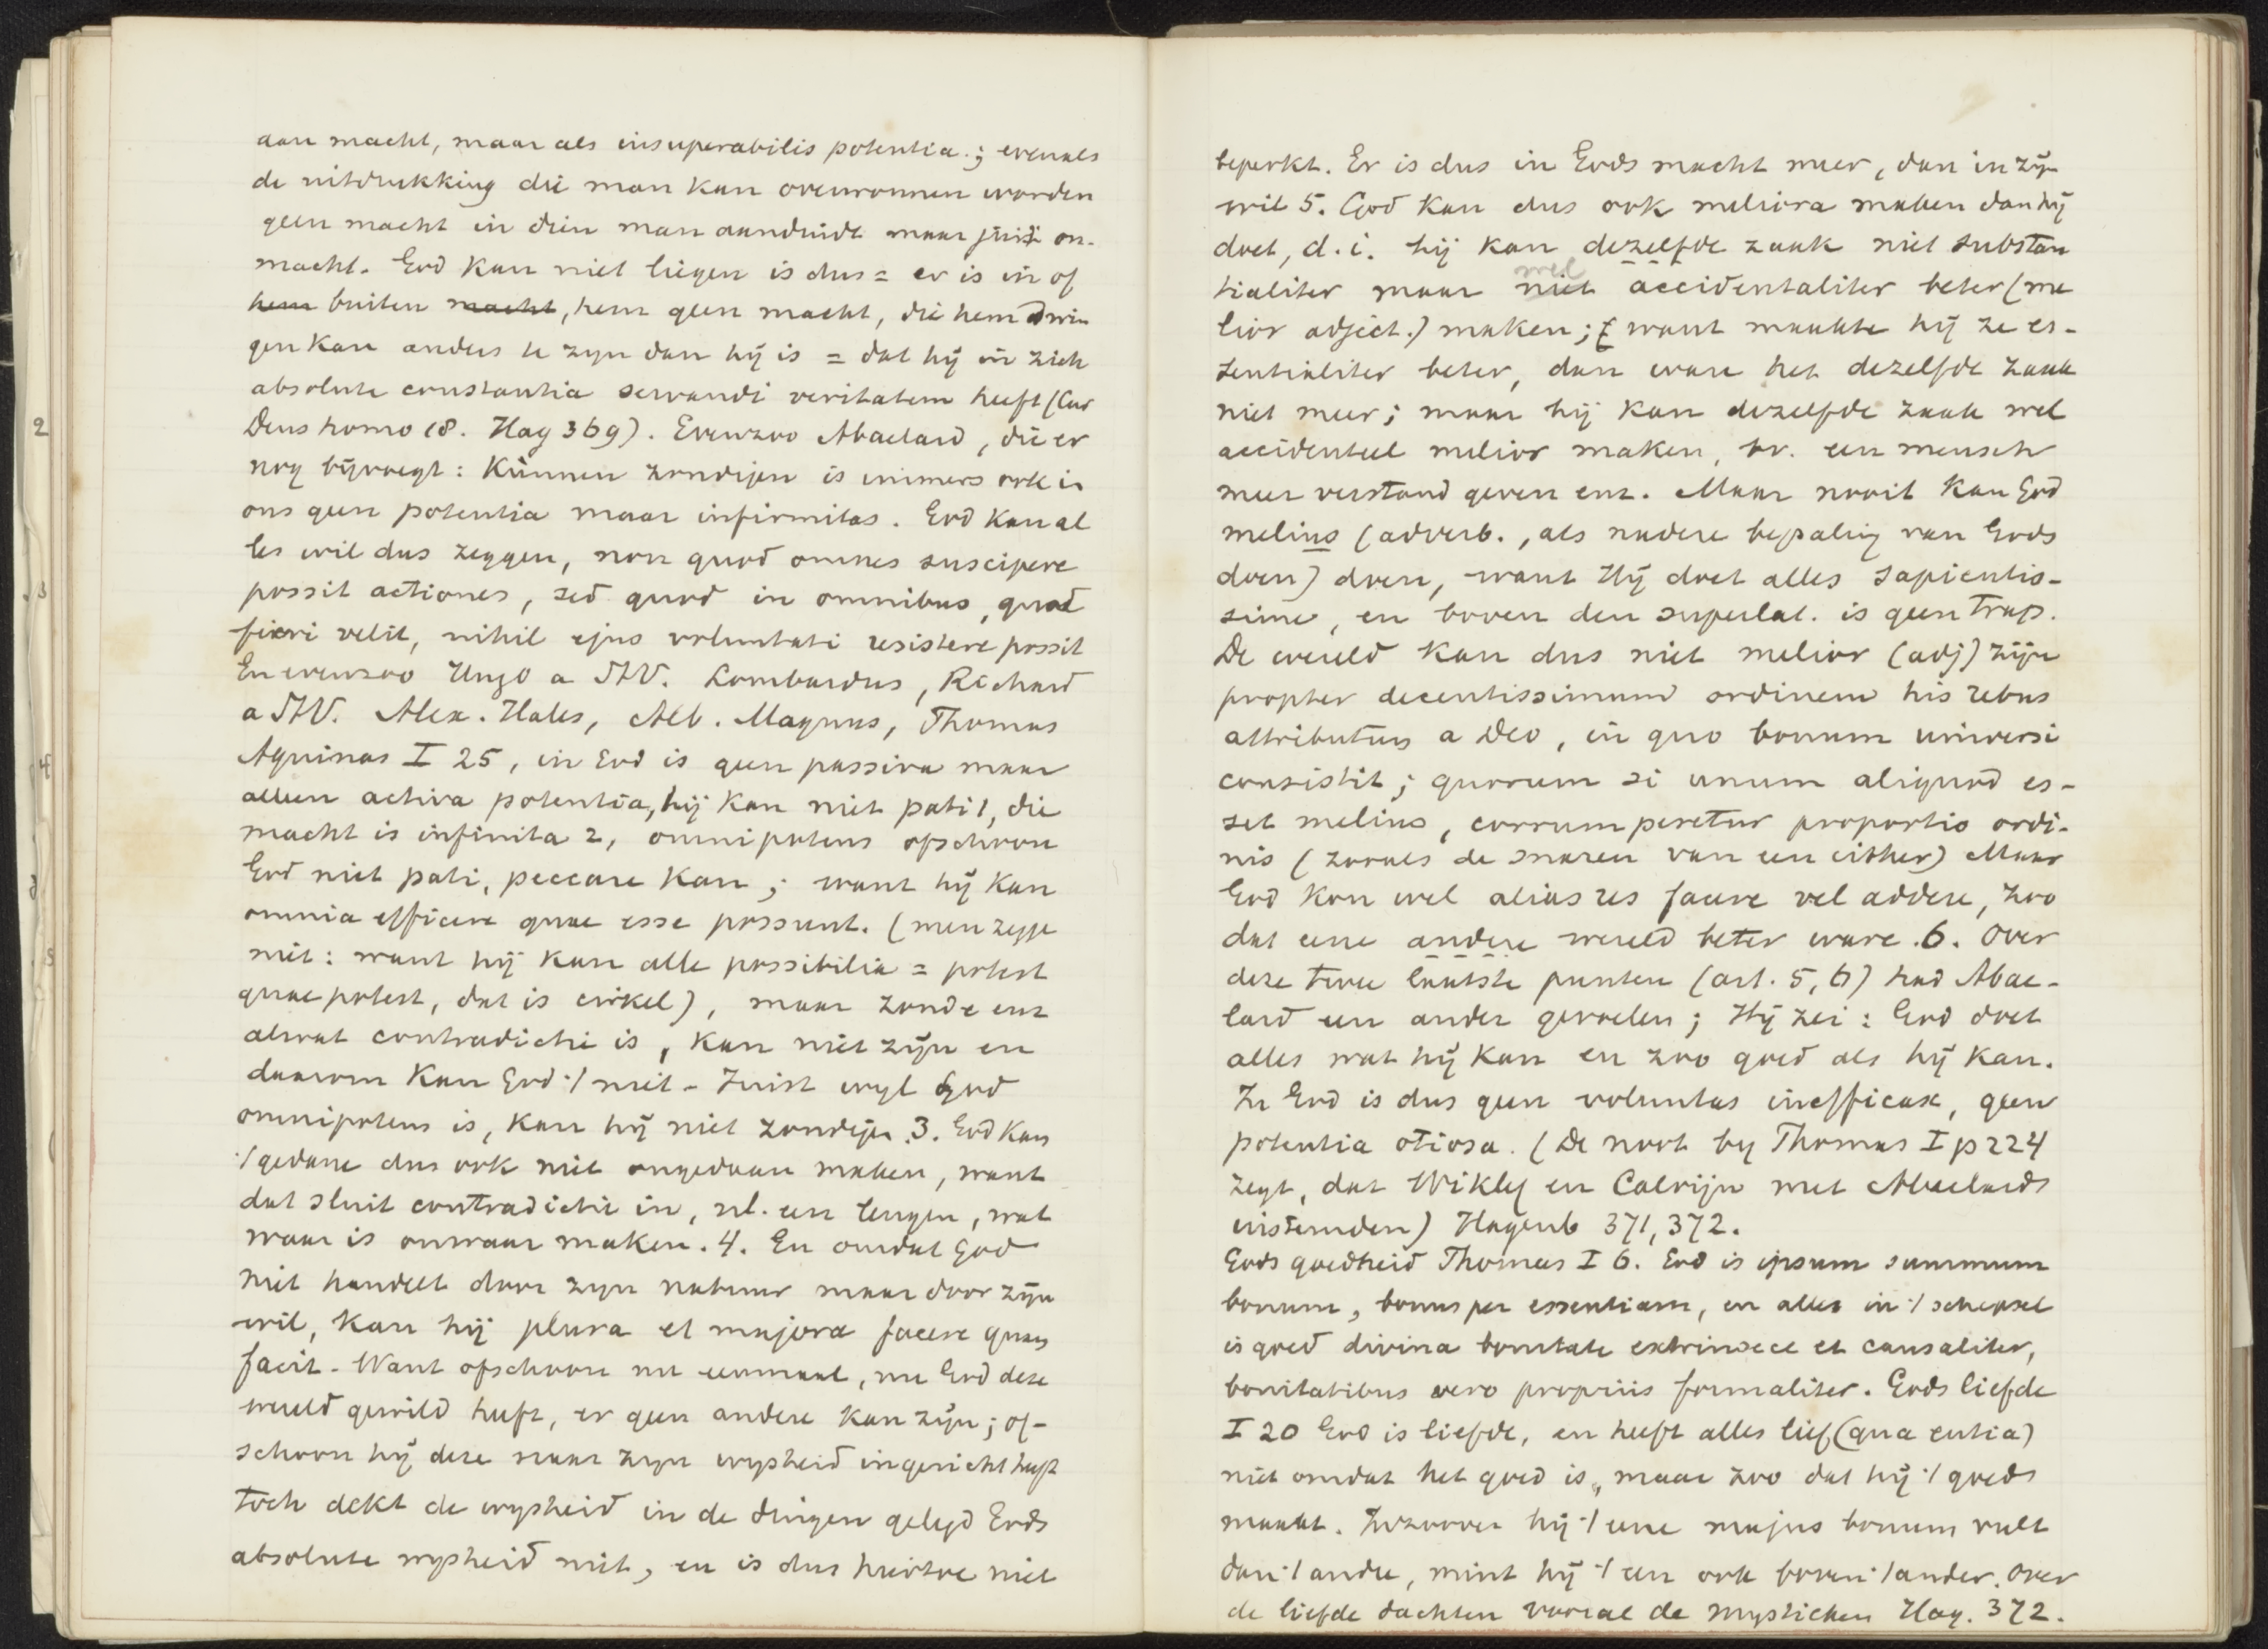 aan macht, maar als insuperabilis potentia; evenals
de uitdrukking die man kan overwonnen worden
geen macht in dien man aanduidt maar juist on-
macht. God kan niet liegen is dus = er is in of
hem buiten macht, hem geen macht, die hem dwin
gen kan anders te zyn dan hij is = dat hij in zich
absolute constantia servandi veritatem heeft (Cur
Deus homo 18. Hag 369). Evenzoo Abaelard, die er
nog bijvoegt: Kunnen zondigen is immers ook in
ons geen potentia maar infirmitas. God kan al
les wil dus zeggen, non quod omnes suscipere
possit actiones, sed quod in omnibus, quod
fieri velit, nihil ejus voluntati resistere possit
En evenzoo Hugo a StV. Lombardus, Richard
a StV. Alex. Hales, Alb. Magnus, Thomas
Aquinas I 25, in God is geen passiva maar
alleen activa potentia, hij kan niet pati 1, die
macht is infinita 2, omnipotens ofschoon
God niet pati, peccare kan; want hij kan
omnia efficere quae esse possunt. (men zegge
niet: want hij kan alle possibilia = potest
quae potest, dat is cirkel), maar zonde enz
alwat contradictie is, kan niet zijn en
daarom kan God ·/ niet - Juist wyl God
omnipotens is, kan hij niet zondigen. 3. God kan
·/ gedane dus ook niet ongedaan maken, want
dat sluit contradictie in, nl. een leugen, wat
waar is onwaar maken. 4. En omdat God
niet handelt door zyn natuur maar door zijn
wil, kan hij plura et majora facere quam
facit - Want ofschoon nu eenmaal, nu God deze
wereld gewild heeft, er geen andere kan zijn; of-
schoon hij deze naar zyn wysheid ingericht heeft
toch dekt de wysheid in de dingen gelegd Gods
absolute wysheid niet, en is dus hiertoe niet
beperkt. Er is dus in Gods macht meer, dan in zijn
wil 5. God kan dus ook meliora maken dan hij
doet, d.i. hij kan dezelfde zaak niet substan
wel
tialiter maar niet accidentaliter beter (me
lior adject.) maken; want maakte hij ze es-
sentialiter beter, dan ware het dezelfde zaak
niet meer; maar hij kan dezelfde zaak wel
accidenteel melior maken, bv. een mensch
meer verstand geven enz. Maar nooit kan God
melius (adverb., als nadere bepaling van Gods
doen) doen, want Hij doet alles sapientis-
sime, en boven den superlat. is geen trap.
De wereld kan dus niet melior (adj) zijn
propter decentissimum ordinem his rebus
attributum a Deo, in quo bonum universi
consistit; quorum si unum aliquod es-
set melius, corrumperetur proportio ordi-
nis (zooals de snaren van een cither) Maar
God kon wel alias res facere vel addere, zoo
dat eene andere wereld beter ware. 6. Over
deze twee laatste punten (art. 5, 6) had Abae-
lard een ander gevoelen; Hij zei: God doet
alles wat hij kan en zoo goed als hij kan.
In God is dus geen voluntas inefficax, geen
potentia otiosa. (De noot by Thomas I p 224
zegt, dat Wiklef en Calvijn met Abaelards
instemden) Hagenb 371, 372.
Gods goedheid Thomas I 6. God is ipsum summum
bonum, bonus per essentiam, en alles in ·/ schepsel
is goed divina bonitate extrinsece et causaliter,
bonitatibus vero propriis formaliter. Gods liefde
I 20 God is liefde, en heeft alles lief (qua entia)
niet omdat het goed is, maar zoo dat hij ·/ goeds
maakt. Inzoover hij ·/ eene majus bonum vult
dan ·/ andre, mint hij ·/ een ook boven ·/ ander. Over
de liefde dachten vooral de mystieken Hag. 372.